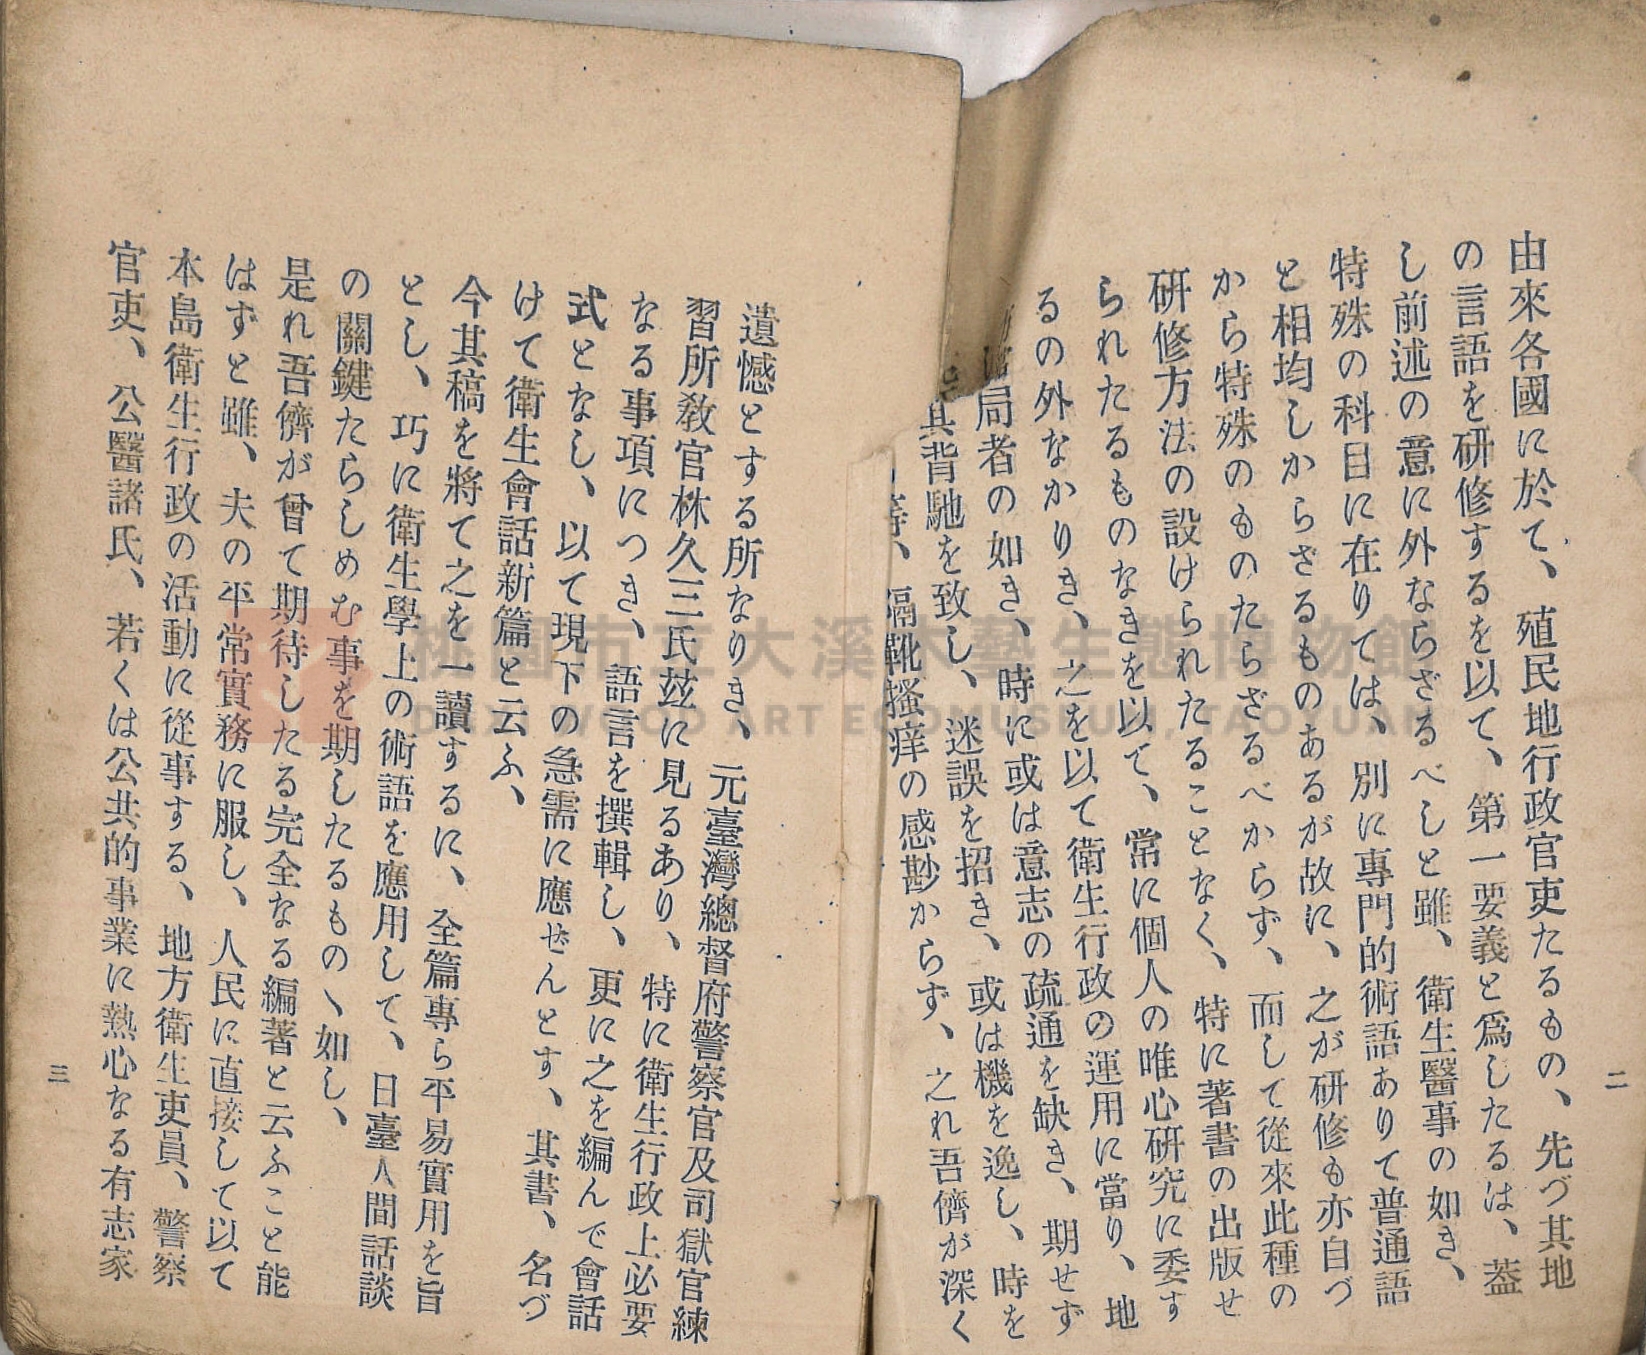 由來各國に於て、殖民地行政官吏たるもの、先づ其地
の言語を研修するを以て、第一要義と爲したるは、蓋
し前述の意に外ならざるべしと雖、衛生醫事の如き、
特殊の科目に在りては、別に專門的術語ありて普通語
と相均しからざるものあるが故に、之が研修も亦自づ
から特殊のものたらざるべからず、而して從來此種の
研修方法の設けられたることなく、特に著書の出版せ
られたるものなきを以て、常に個人の唯心研究に委す
るの外なかりき、之を以て衛生行政の運用に當り、地
局者の如き、時に或は意志の疏通を缺き、期せず
其背馳を致し、迷誤を招き、或は機を逸し、時を
等、隔靴搔痒の感尠からず、之れ吾儕が深く
二
遺憾とする所なりき、元臺灣總督府警察官及司獄官練
習所敎官林久三氏玆に見るあり、特に衛生行政上必要
なる事項につき、語言を撰輯し、更に之を編んで會話
式となし、以て現下の急需に應ぜんとす、其書、名づ
けて衛生會話新篇と云ふ、
今其稿を將て之を一讀するに、全篇專ら平易實用を旨
とし、巧に衛生學上の術語を應用して、日臺人間話談
の關鍵たらしめむ事を期したるものヽ如し、
是れ吾儕が曾て期待したる完全なる編著と云ふこと能
はずと雖、夫の平常實務に服し、人民に直接して以て
本島衛生行政の活動に從事する、地方衛生吏員、警察
官吏、公醫諸氏、若くは公共的事業に熱心なる有志家
三
桃園市立大溪木藝生態博物館
DAXI WOOD ART ECOMUSEUM, TAOYUAN